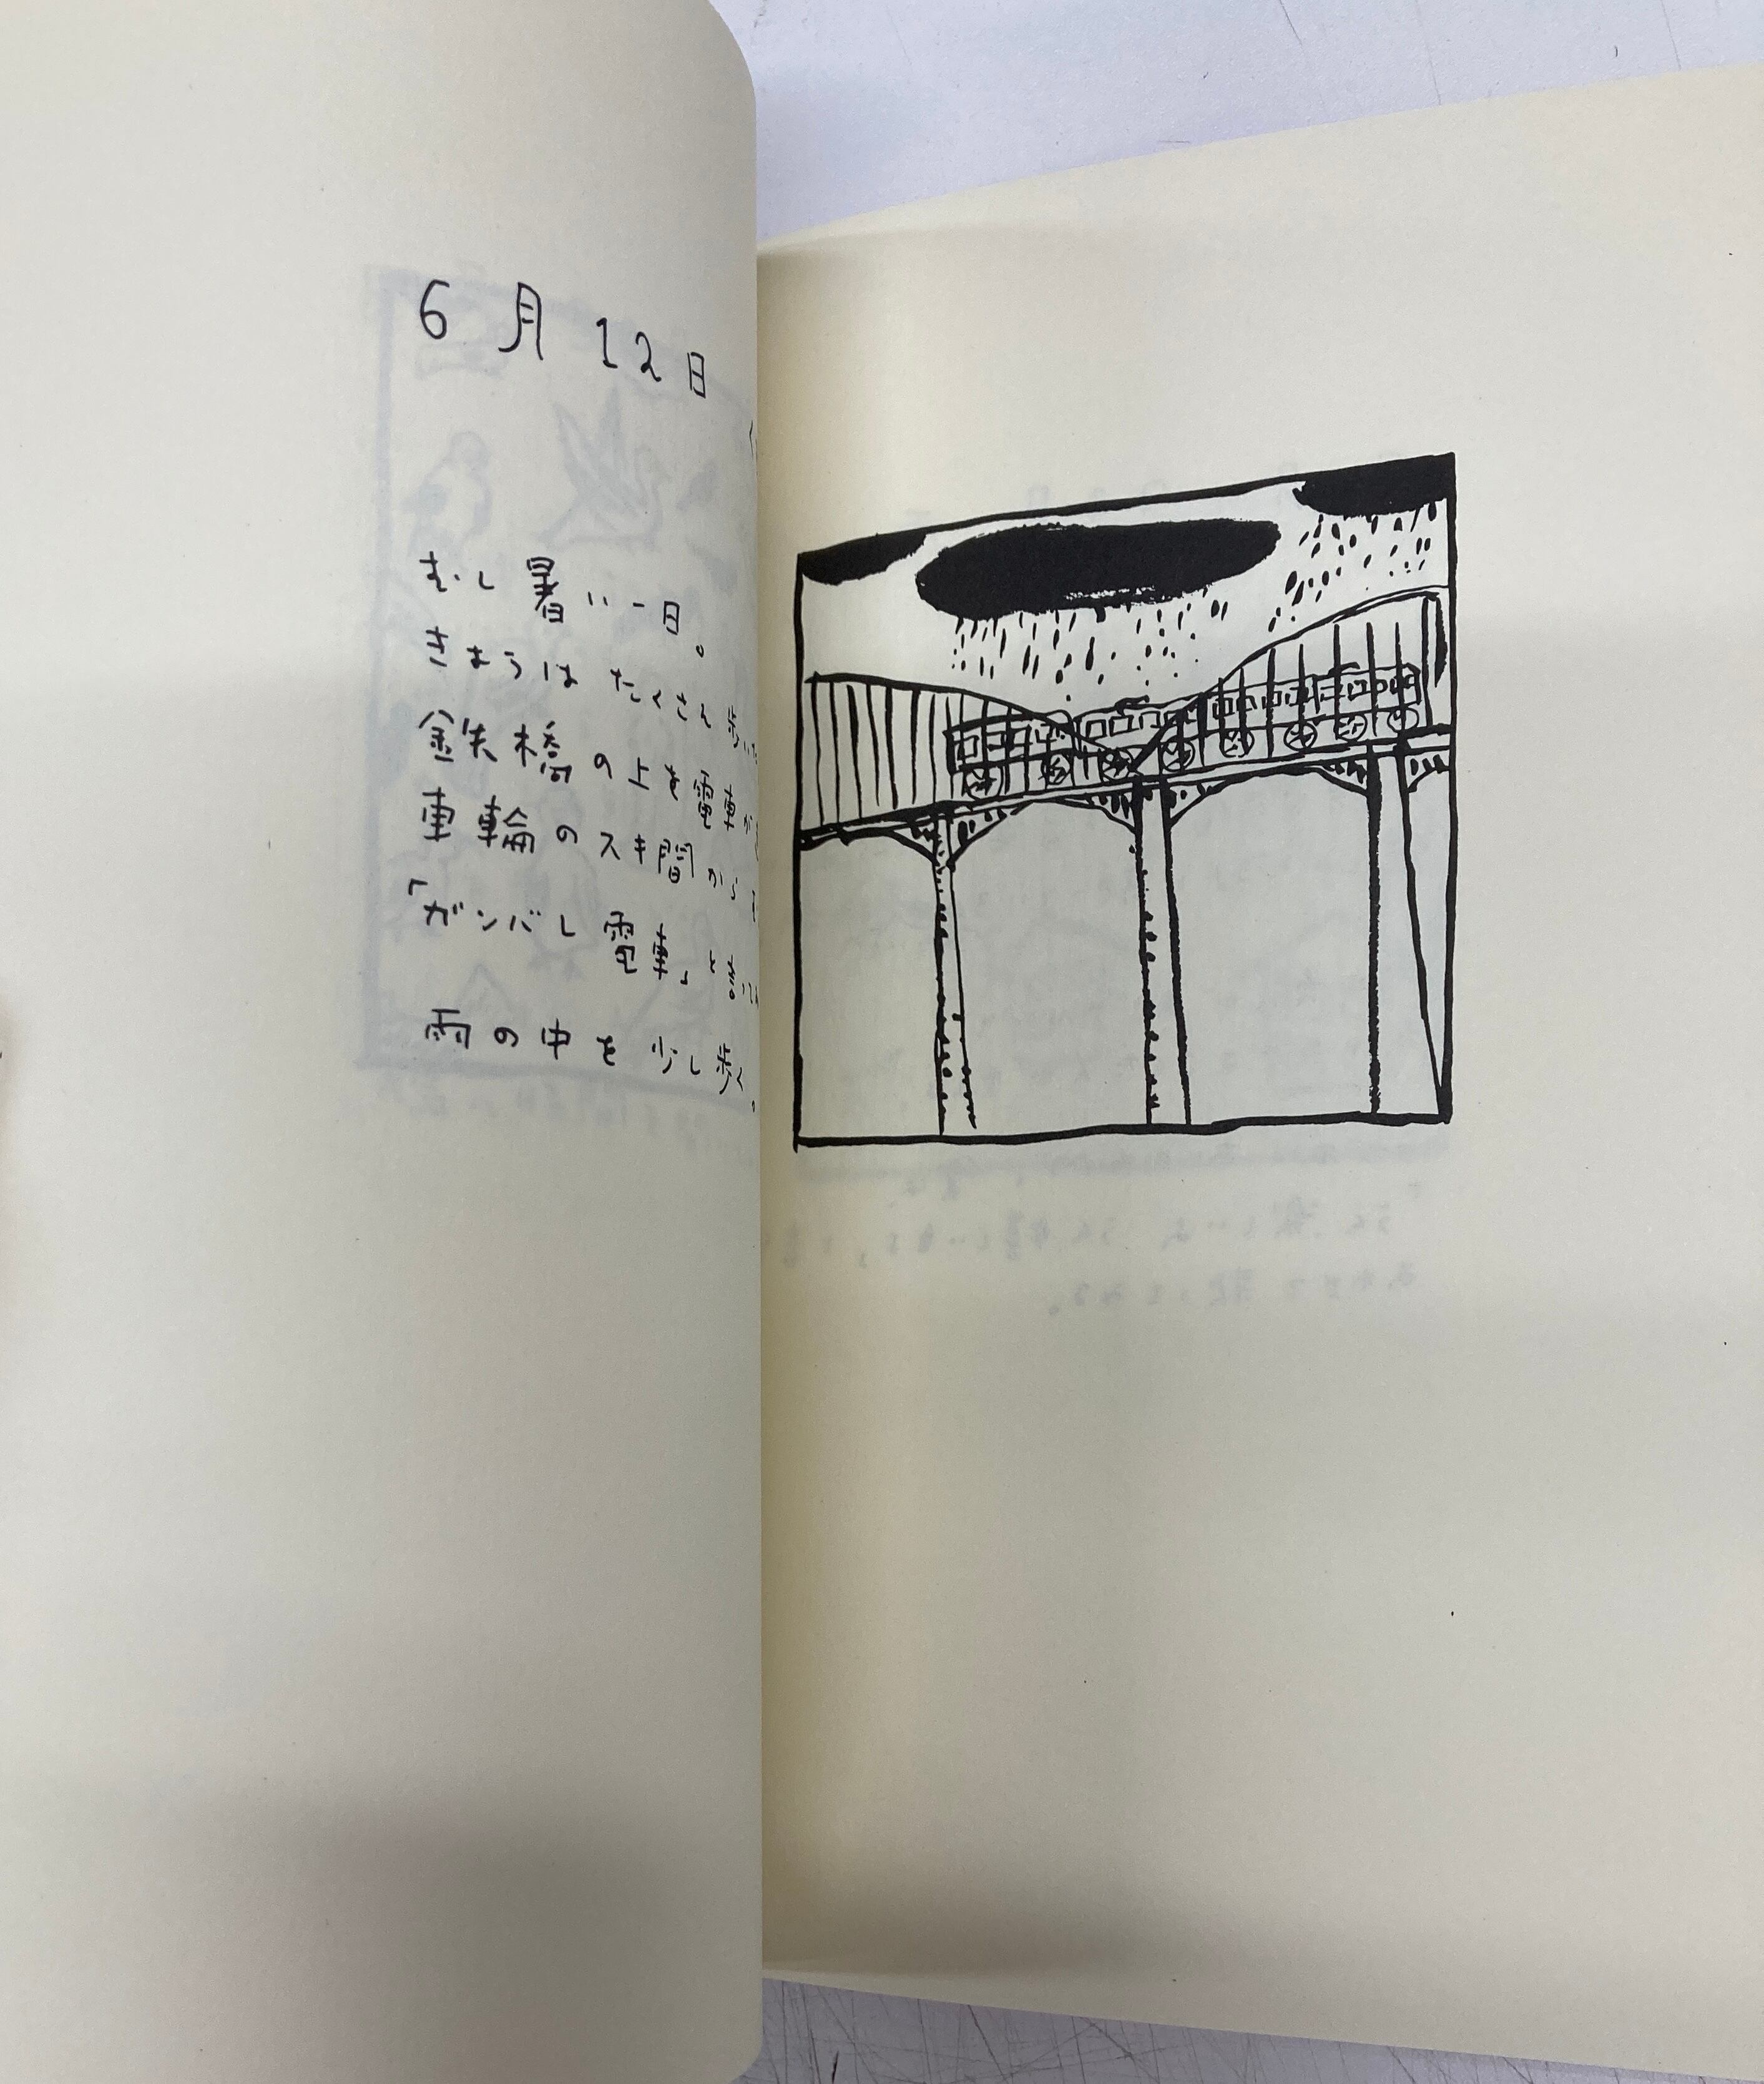 6月12日
むし暑い一日。
きょうは たくさん 歩いた
鉄橋の上を電車が
車輪のスキ間から
「ガンバレ電車」と言い
雨の中を少し歩く。